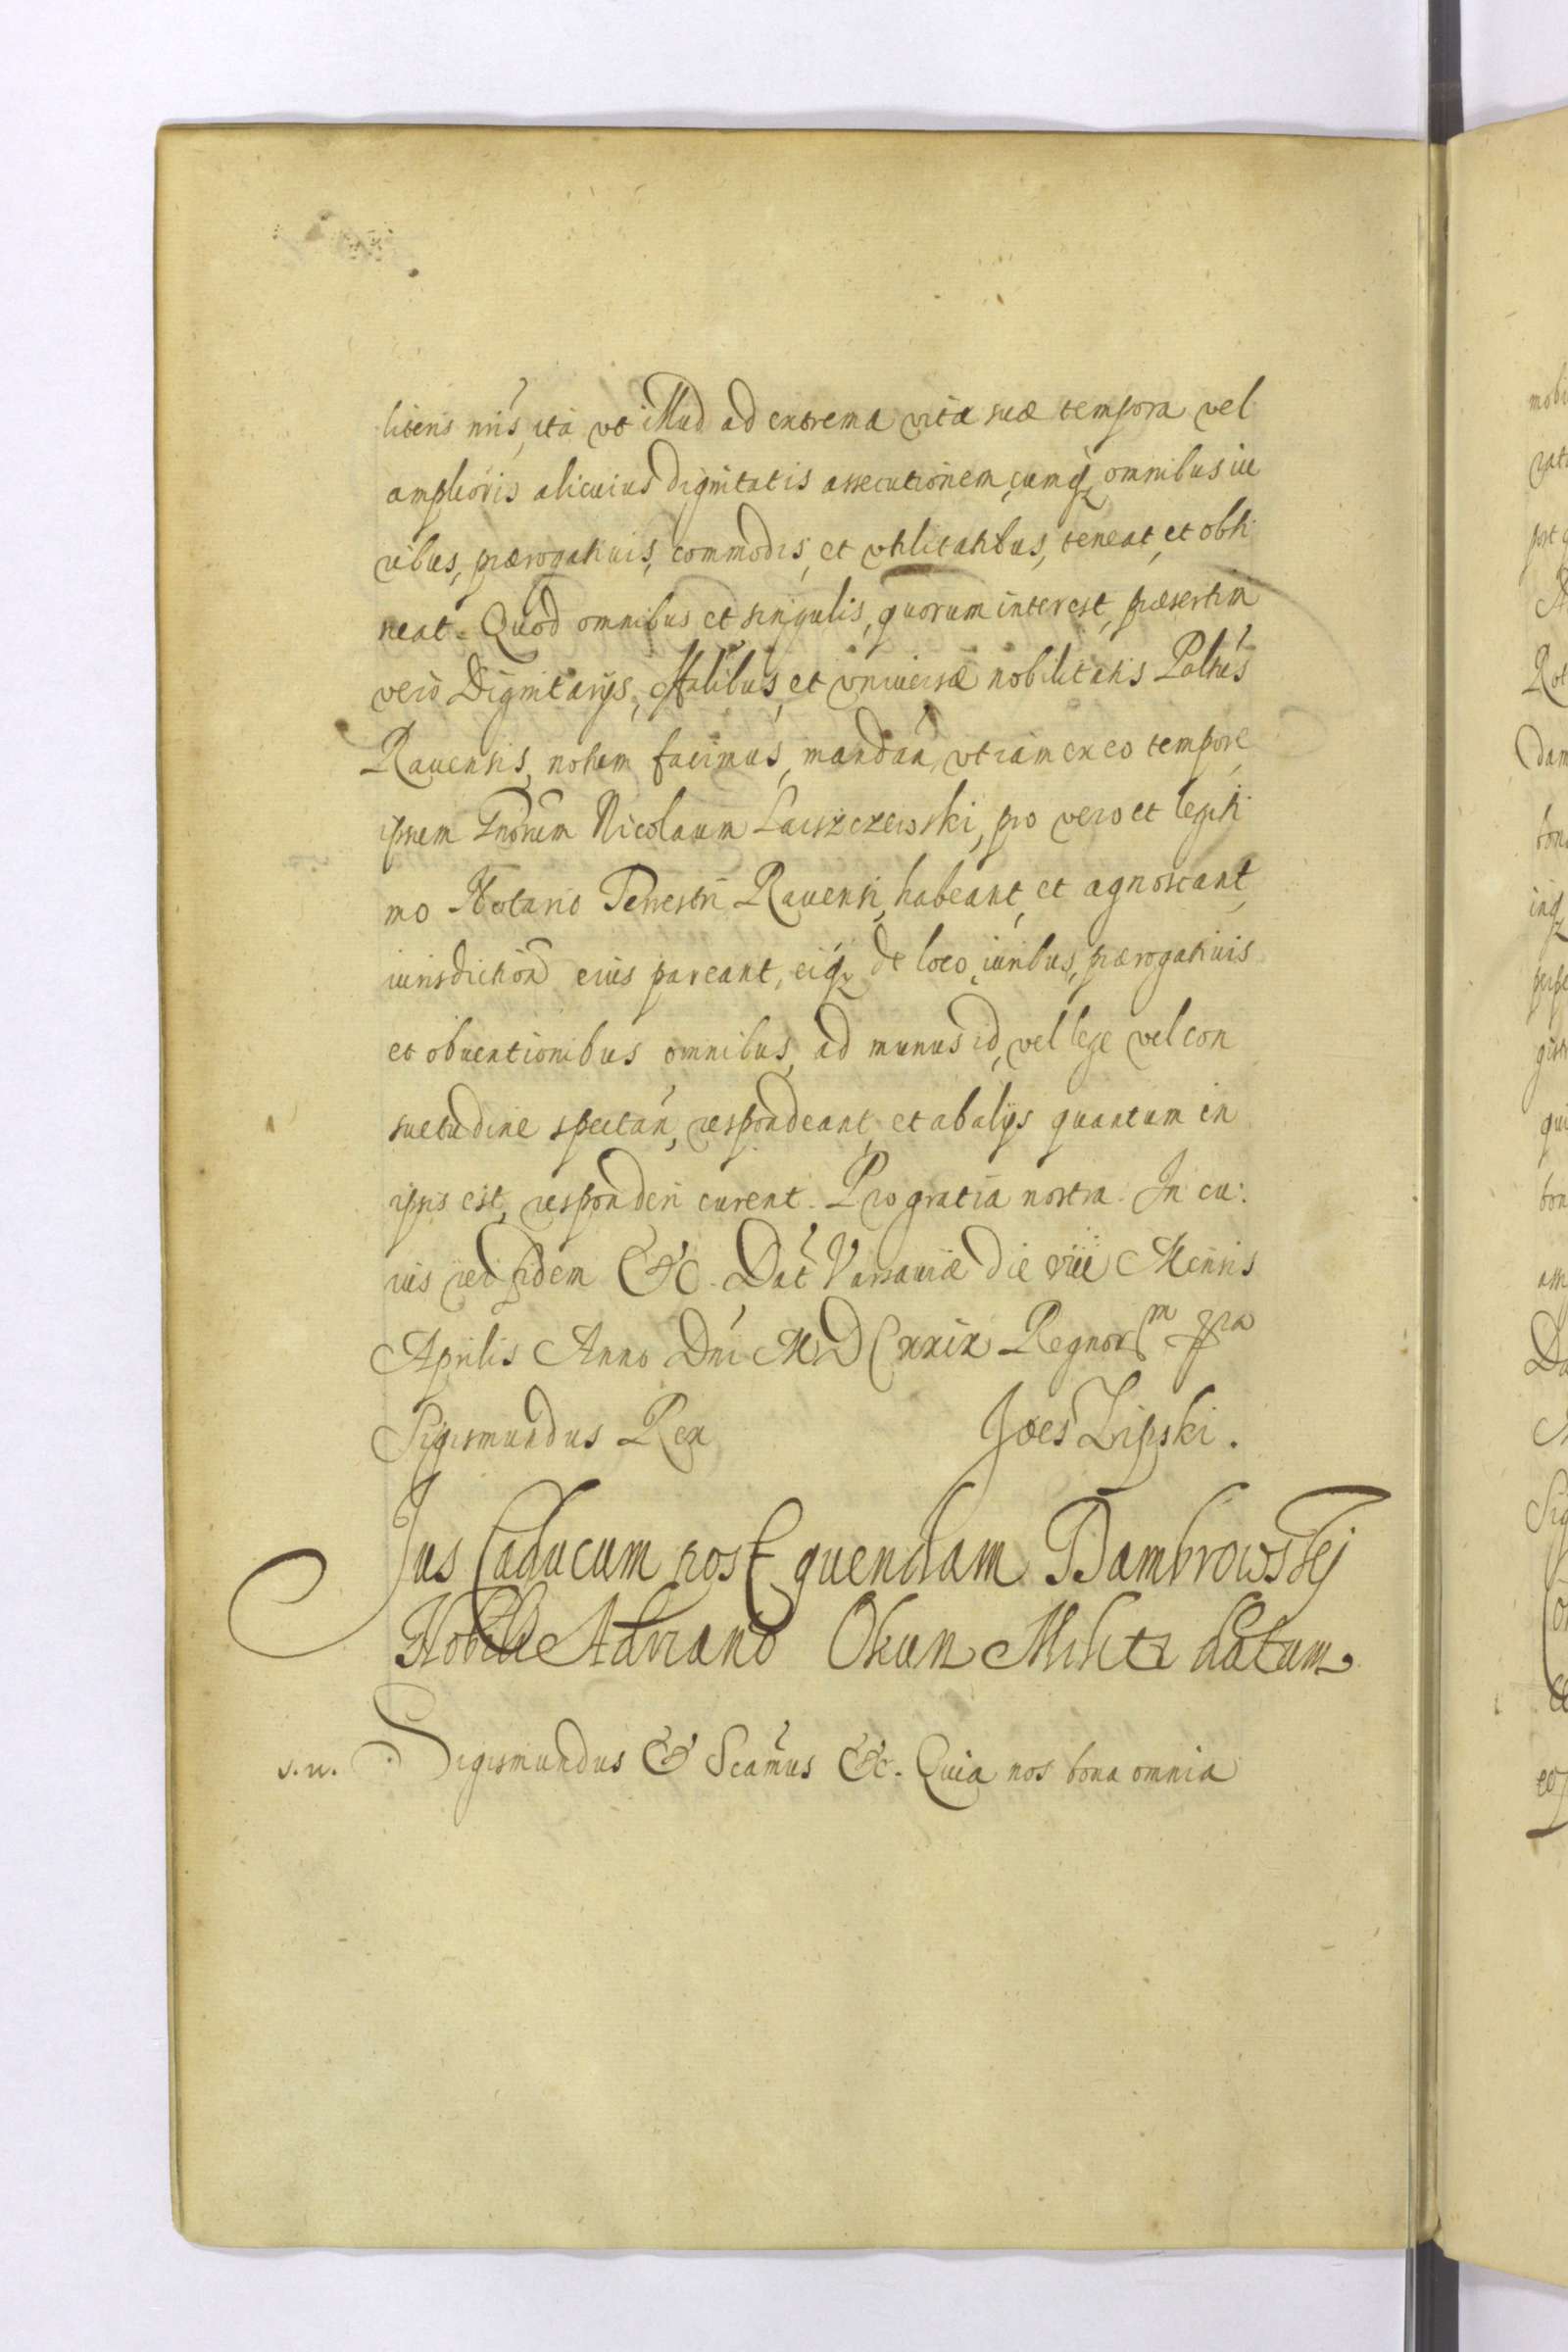 literis nris, ita vt illud ad extrema vitæ suæ tempora vel
amplioris alicuius dignitatis assecutionem, cumq; omnibus iu
ribus, prærogatiuis, commodis, et vtilitatibus, teneat, et obti
neat. Quod omnibus et singulis, quorum interest, præsertim
vero Dignitarijs, Offalibus, et vniuersæ nobilitatis Paltus
Rauensis, notum facimus, mandan, vt iam ex eo tempore
ipsum Gnosum Nicolaum Laiszczewski, pro vero et legiti
mo Notario Terrestri Rauensi, habeant, et agnoscant,
iurisdiction eius pareant, eiq; de loco, iuribus, prærogatiuis
et obuentionibus omnibus, ad munus id, vel lege vel con
suetudine spectan, respondeant, et ab alijs quantum in
ipsis est, responderi curent. Pro gratia nostra. In cu:
ius rei fidem &c. Dat Varsauiæ die viii Mensis
Aprilis Anno Dni MDCxxix Regnor
Sigismundus Rex Joes Lipski.
Jus Caducum post quendam Dambrowskj
Nobili Adriano Okun Militi datum
s.n. Sigismundus &c Scamus &c. Quia nos bona omnia
mobi
dam
bona
inq
perpe
qui
bon
Da
Sig